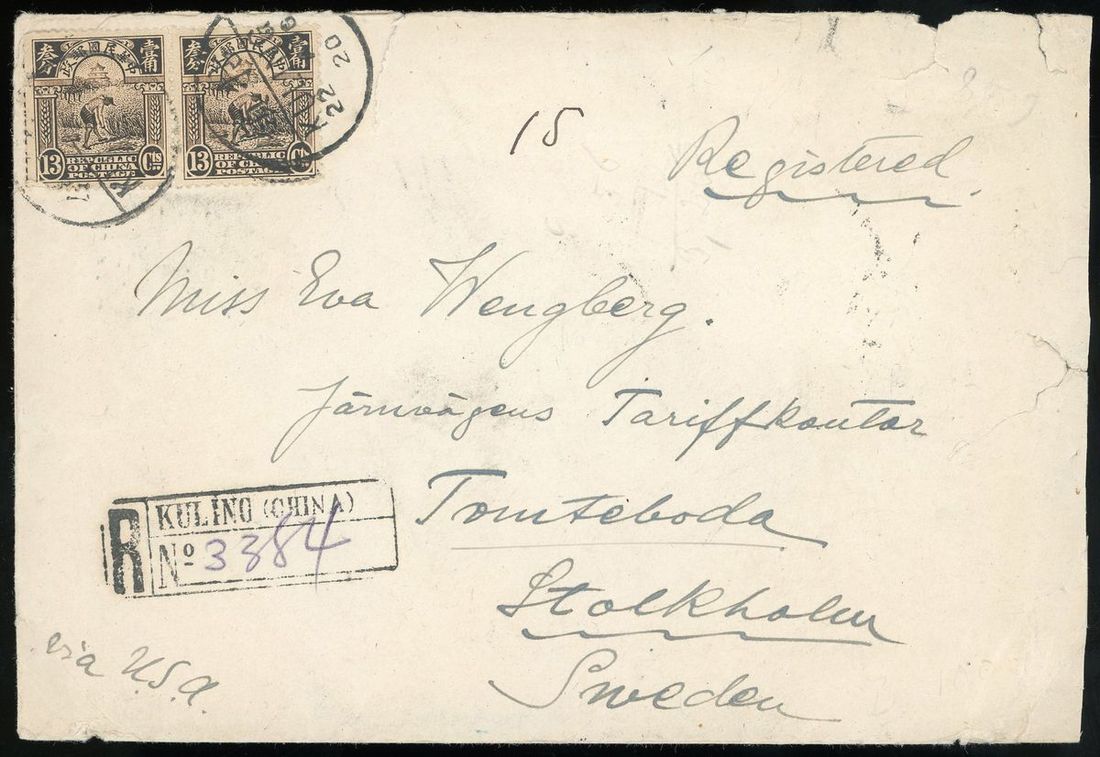 叁分 中華民國郵政 壹角
13 REPUBLIC OF CHINA POSTAGE Cts
叁分 中華民國郵政 壹角
13 REPUBLIC OF CHINA POSTAGE Cts
20
22
15
Registered.
Miss Eva Wengberg.
Järnvägens Tariffkontor
Tomteboda
Stolkholm
Sweden
R KULING (CHINA)
Nº 3384
via U.S.A.